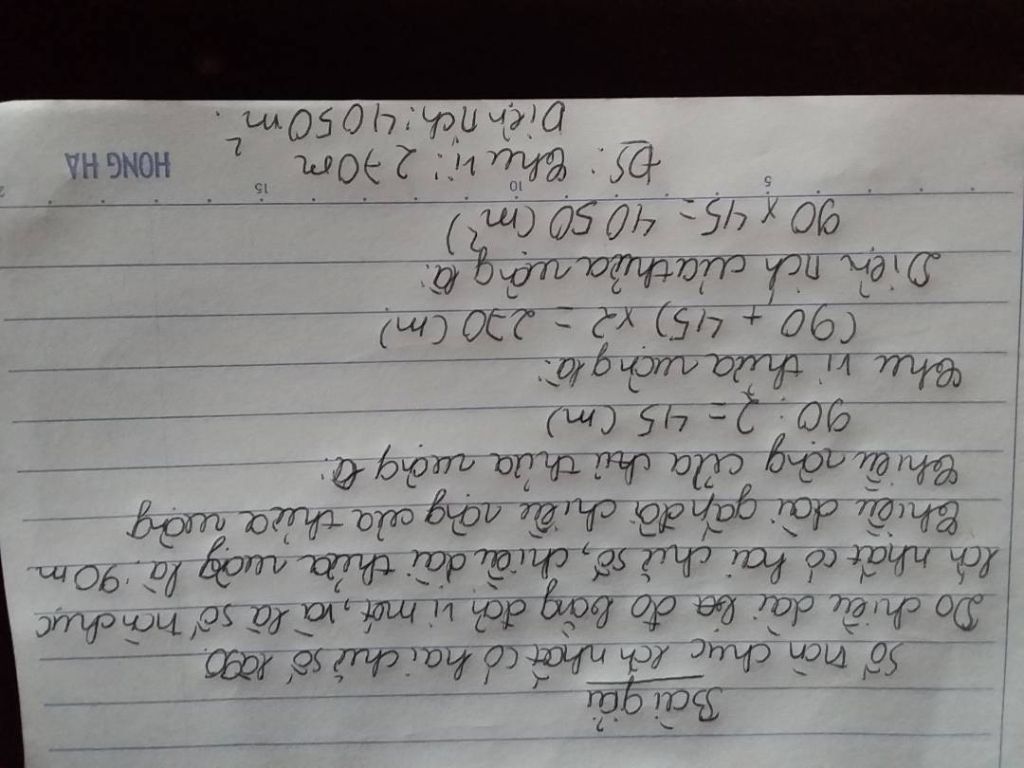 Bài giải
Số tròn chục lớn nhất có hai chữ số là 90.
Do chiều dài đo bằng đơn vị mét, và là số tròn chục
lớn nhất có hai chữ số, chiều dài thửa ruộng là: 90m
Chiều dài gấp đôi chiều rộng của thửa ruộng
Chiều rộng của thửa ruộng là:
90 : 2 = 45 (m)
Chu vi thửa ruộng là:
(90 + 45) x 2 = 270 (m)
Diện tích của thửa ruộng là:
90 x 45 = 4050 (m²)
5 10 15
ĐS: Chu vi: 270m
HONG HA
Diện tích: 4050m².